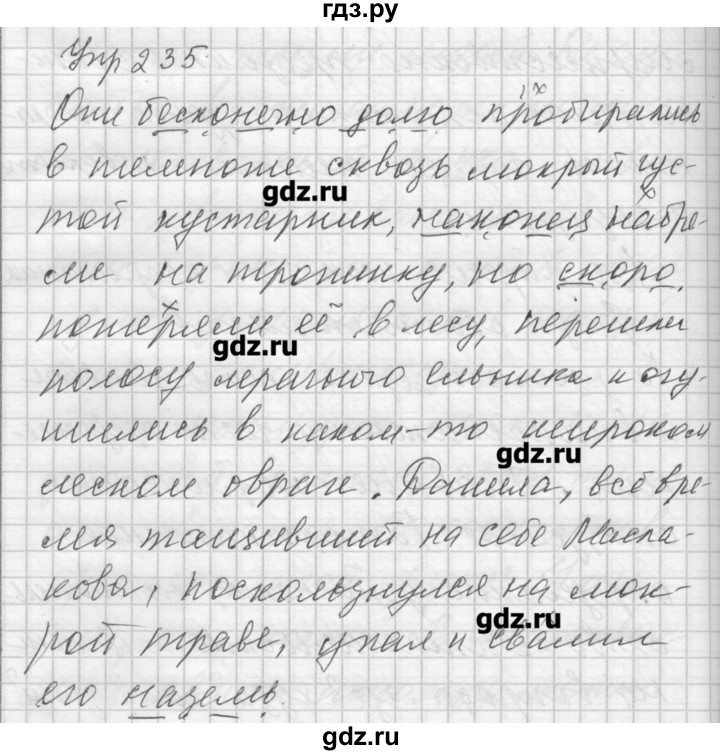 гдз.ру
Упр 235.
Они бесконечно долго пробирались
в темноте сквозь мокрый гус-
gdz.ru
той кустарник, наконец набре-
ли на тропинку, но скоро
потеряли её в лесу, перешли
gdz.ru
полосу мрачного ельника и очу-
тились в каком-то широком
gdz.ru
лесном овраге. Данила, всё вре-
мя тащивший на себе Масла-
кова, поскользнулся на мок-
gdz.ru
рой траве, упал и свалил
его наземь.